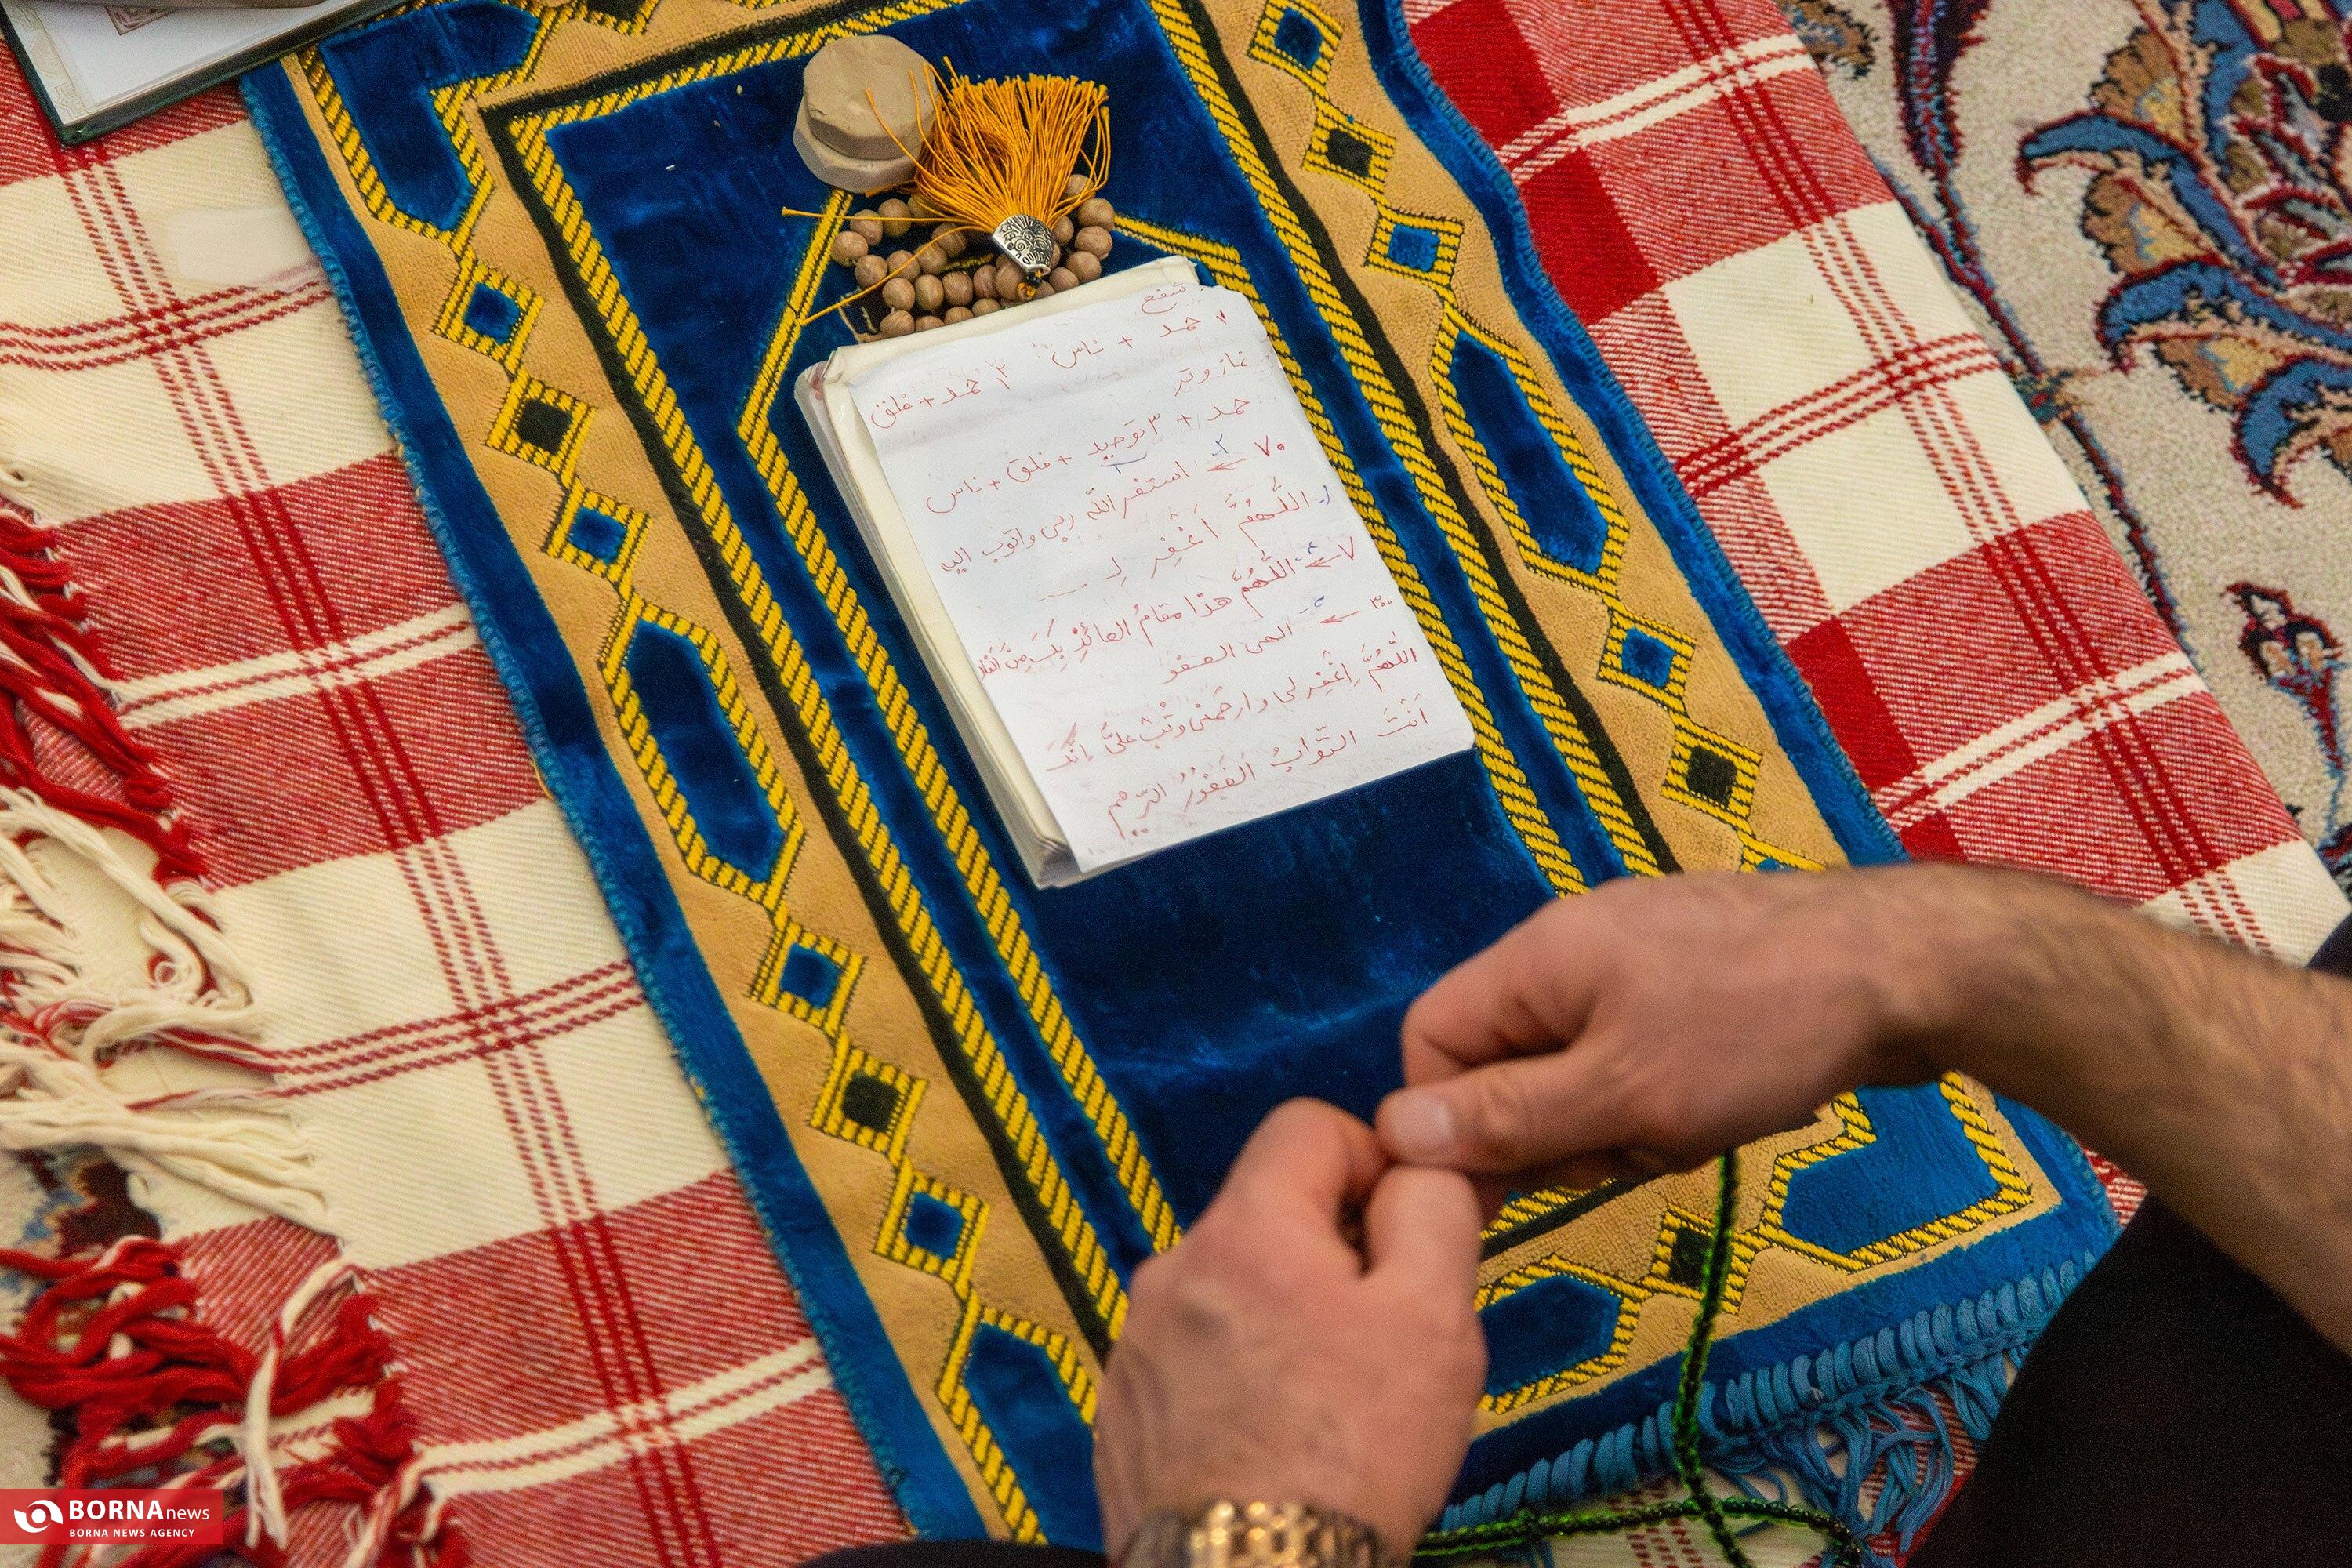 شفع
۱ حمد + ناس ۲ حمد + فلق
نماز وتر
حمد + ۳ توحید + فلق + ناس
۷۰ ← استغفر الله ربی و اتوب الیه
اللَّهُمَّ اَغْفِر لِـ ...
۷ ← اللَّهُمَّ هذا مقامُ العائِذْ بِکَ مِنَ النّار
۳۰۰ ← الهی العفو
اللَّهُمَّ اِغْفِر لی و ارحَمنی وتُبْ علیَّ اِنَّکَ
اَنْتَ التوابُ الغَفْورُ الرّحیم
BORNA news
BORNA NEWS AGENCY